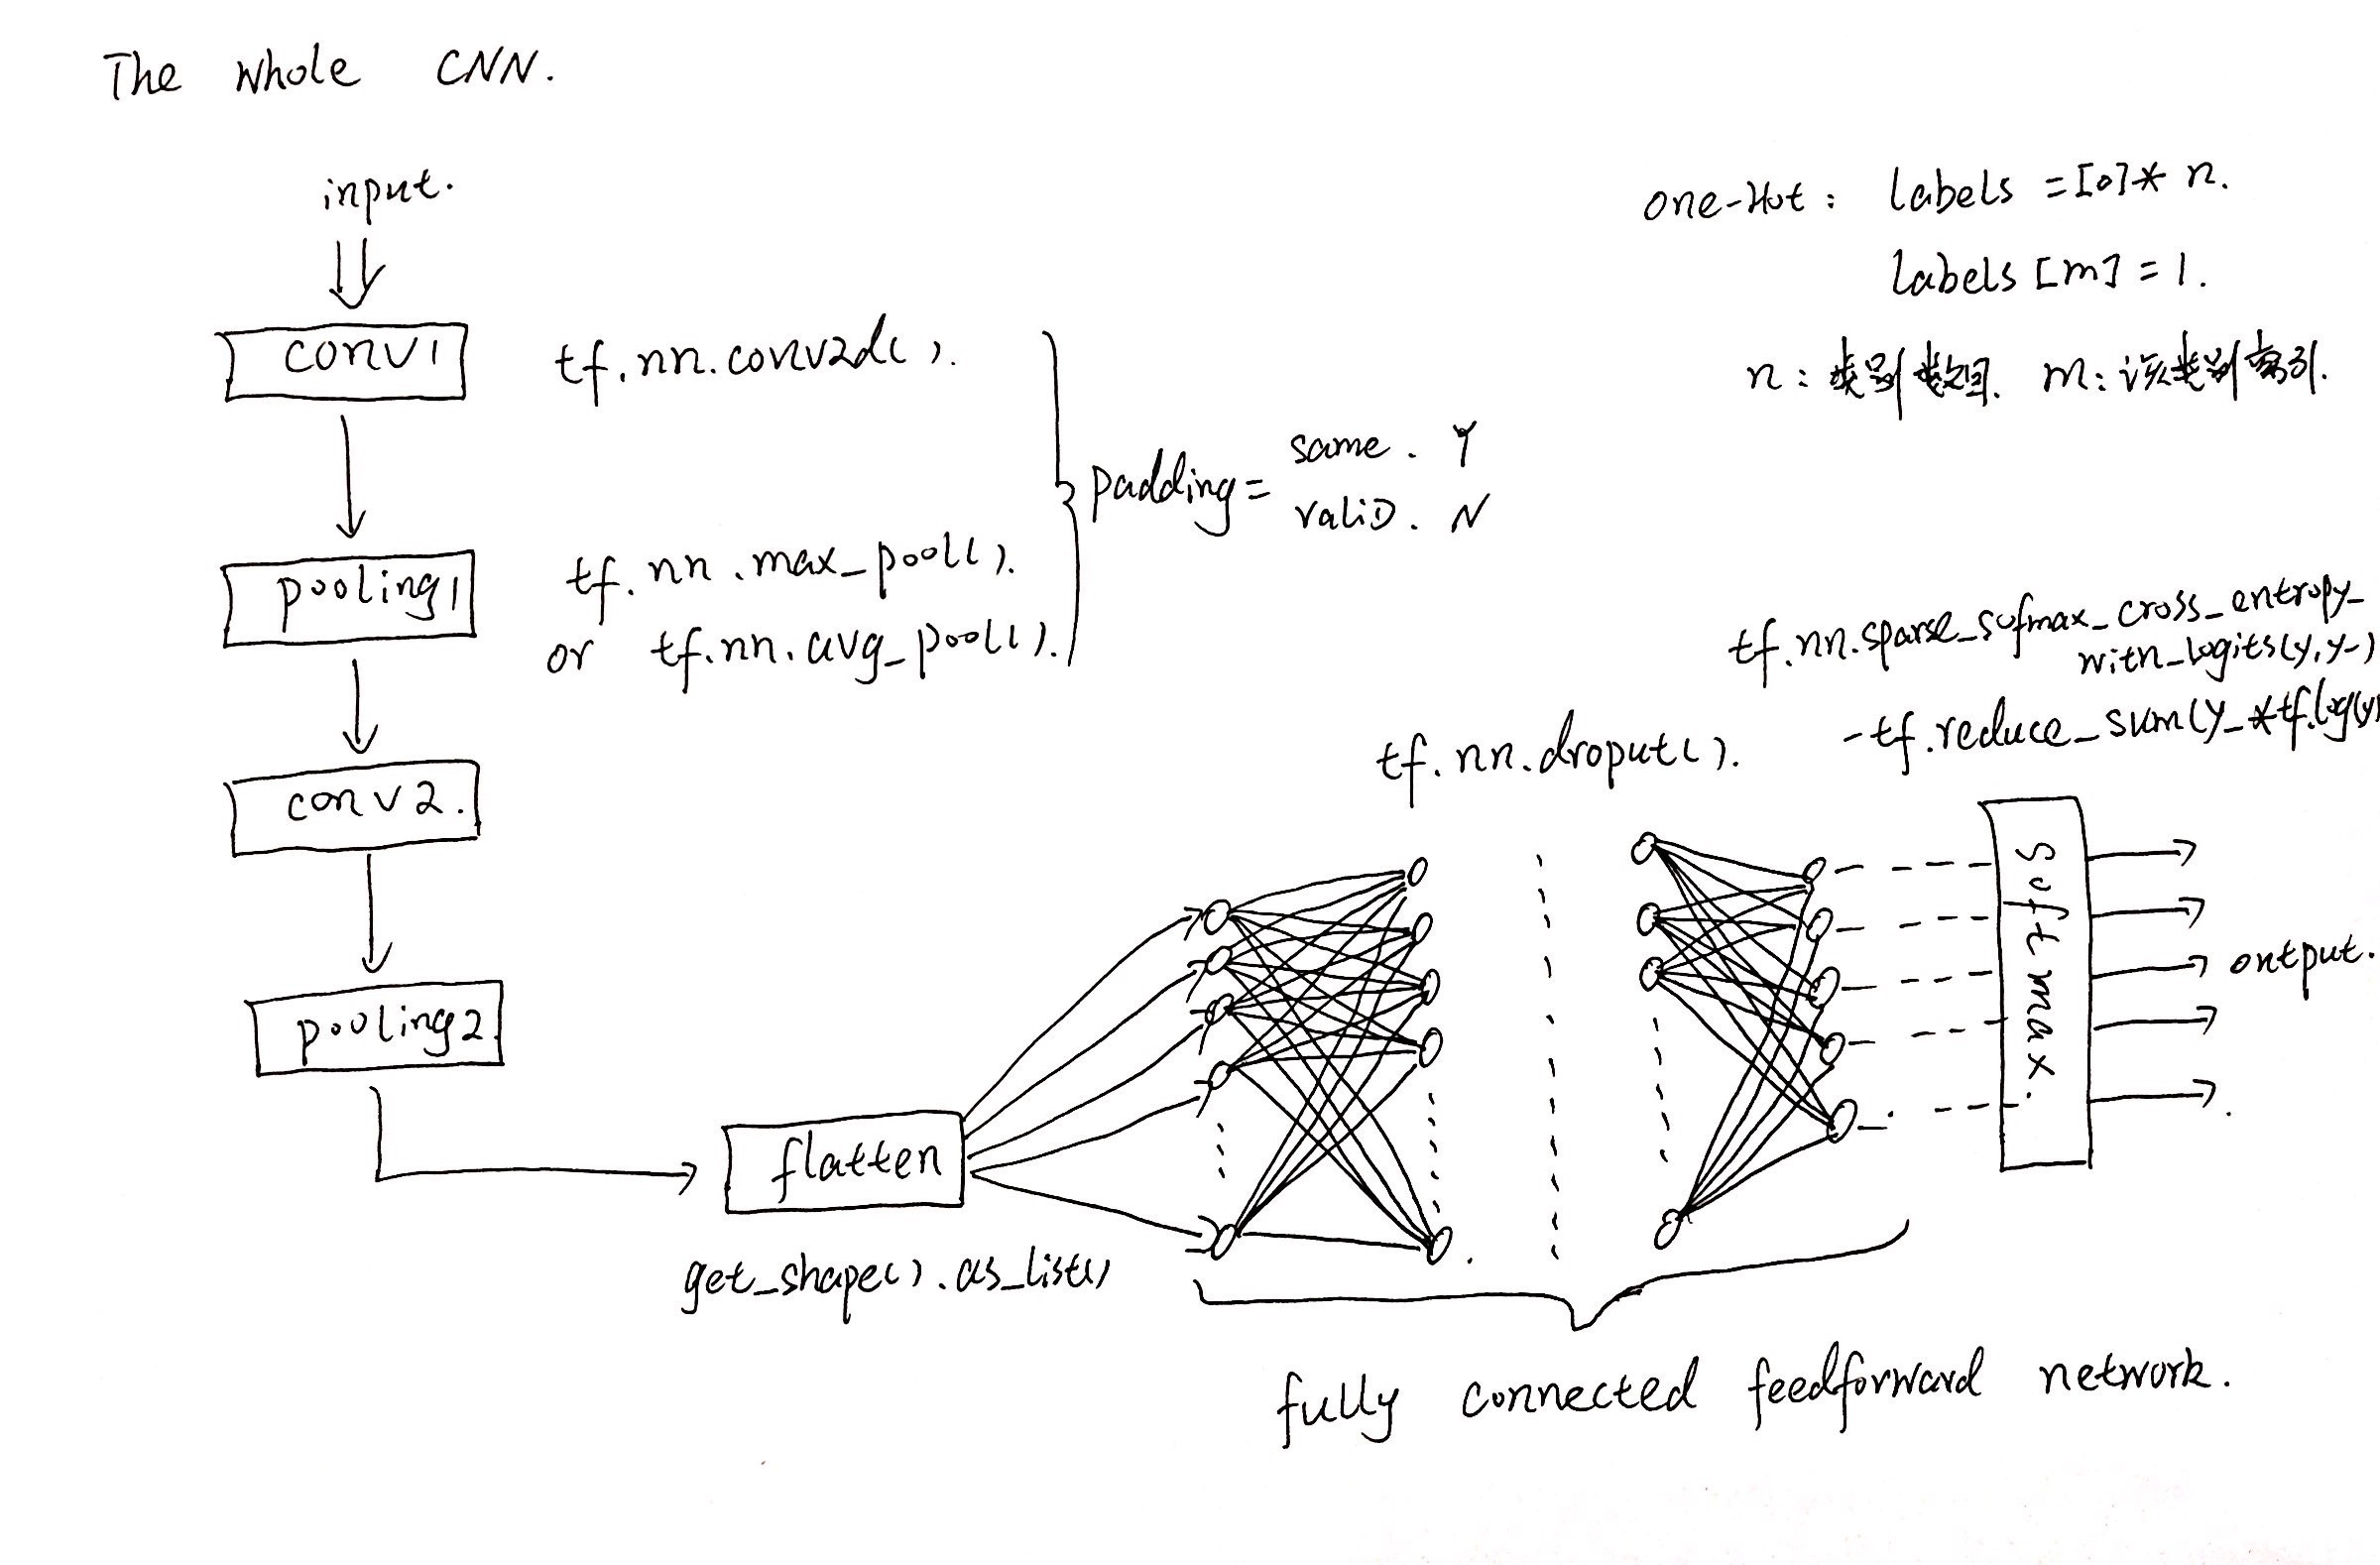 The Whole CNN.
input.
conv1
tf.nn.conv2d().
pooling1
tf.nn.max_pool().
or tf.nn.avg_pool().
padding=
same. Y
valiD. N
conv2.
pooling2.
flatten
get_shape().as_list()
one-Hot: labels =[0]* n.
labels [m] = 1.
n: 类别数组. m: 该类别索引.
tf.nn.sparse_sofmax_cross_entropy_
with_logits(y,y-)
-tf.reduce_sum(y_*tf.log(y)
tf.nn.droput().
softmax.
output.
fully connected feedforward network.